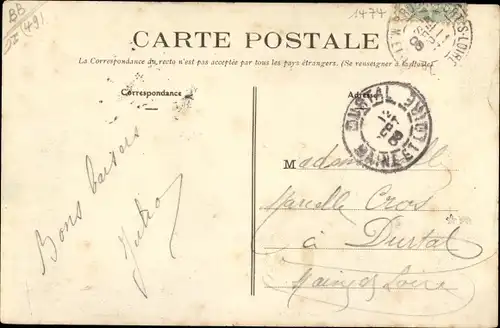 BB
(49)
1474
CARTE POSTALE
La Correspondance du recto n'est pas acceptée par tous les pays étrangers. (Se renseigner à la Poste).
Correspondance
Adresse
DURTAL
MAINE ET LOIRE
Bons baisers
Mademoiselle
Marcelle Cros
à Durtal
Maine & Loire